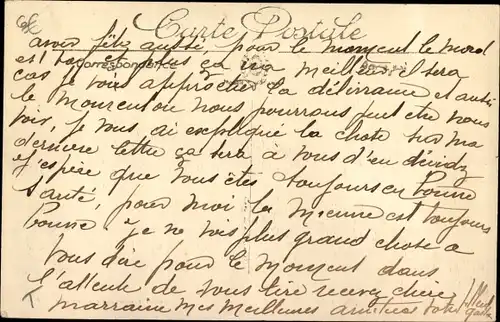 Carte Postale
Correspondance
avoir fêtz aussi, pour le moment le moral
est bon plus ça ira meilleur il sera
car je vois approcher la délivrance et aussi
le moment ou nous pourrons peut etre nous
voir, je vous ai expliqué la chose sur ma
derniere lettre ça sera à vous d'en décidez
j'espère que vous êtes toujours en bonne
santé, pour moi la mienne est toujours
bonne je ne vois plus grand chose a
vous dire pour le moment dans
l'attente de vous lire recevez chère
marraine mes meilleures amitiés votre filleul